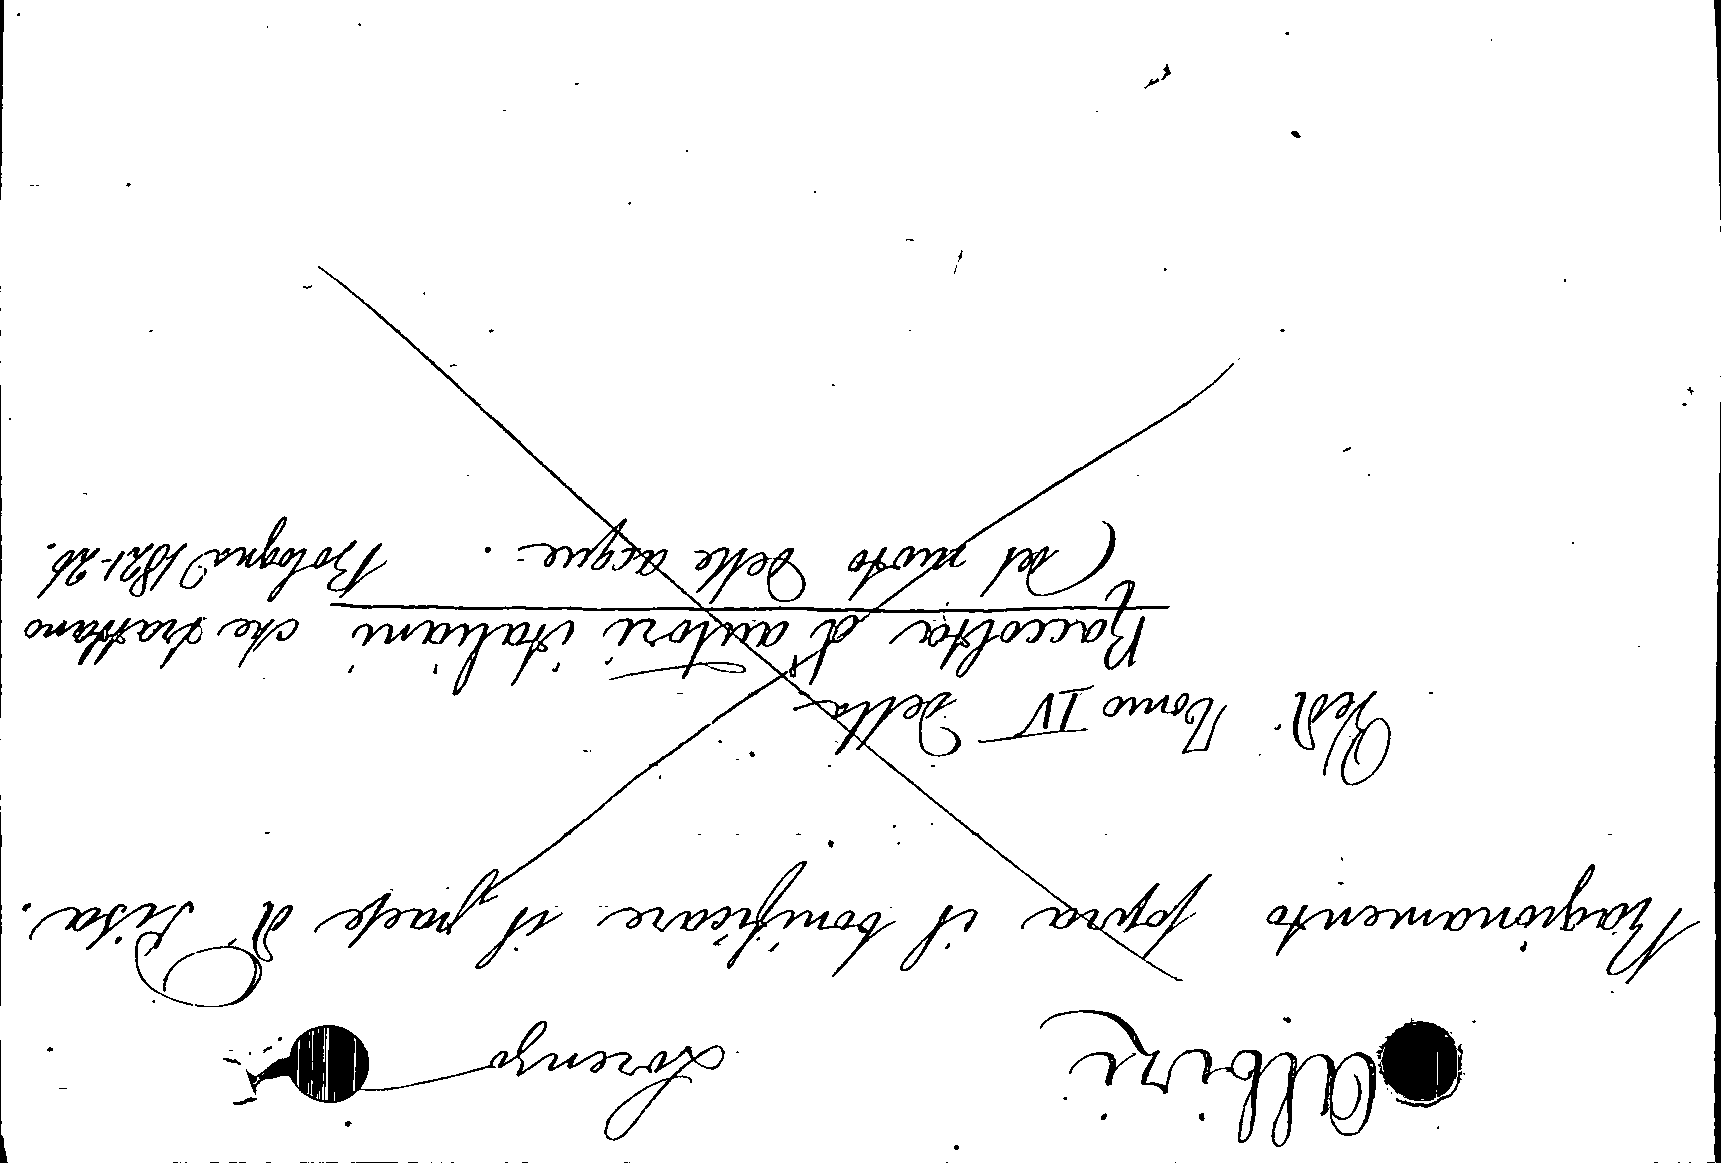 Albizi Lorenzo
Ragionamento sopra il bonificare il paese di Pisa.
Vedi Tomo IV della
Raccolta d'autori italiani che trattano
(del moto delle acque. Bologna 1821-26.